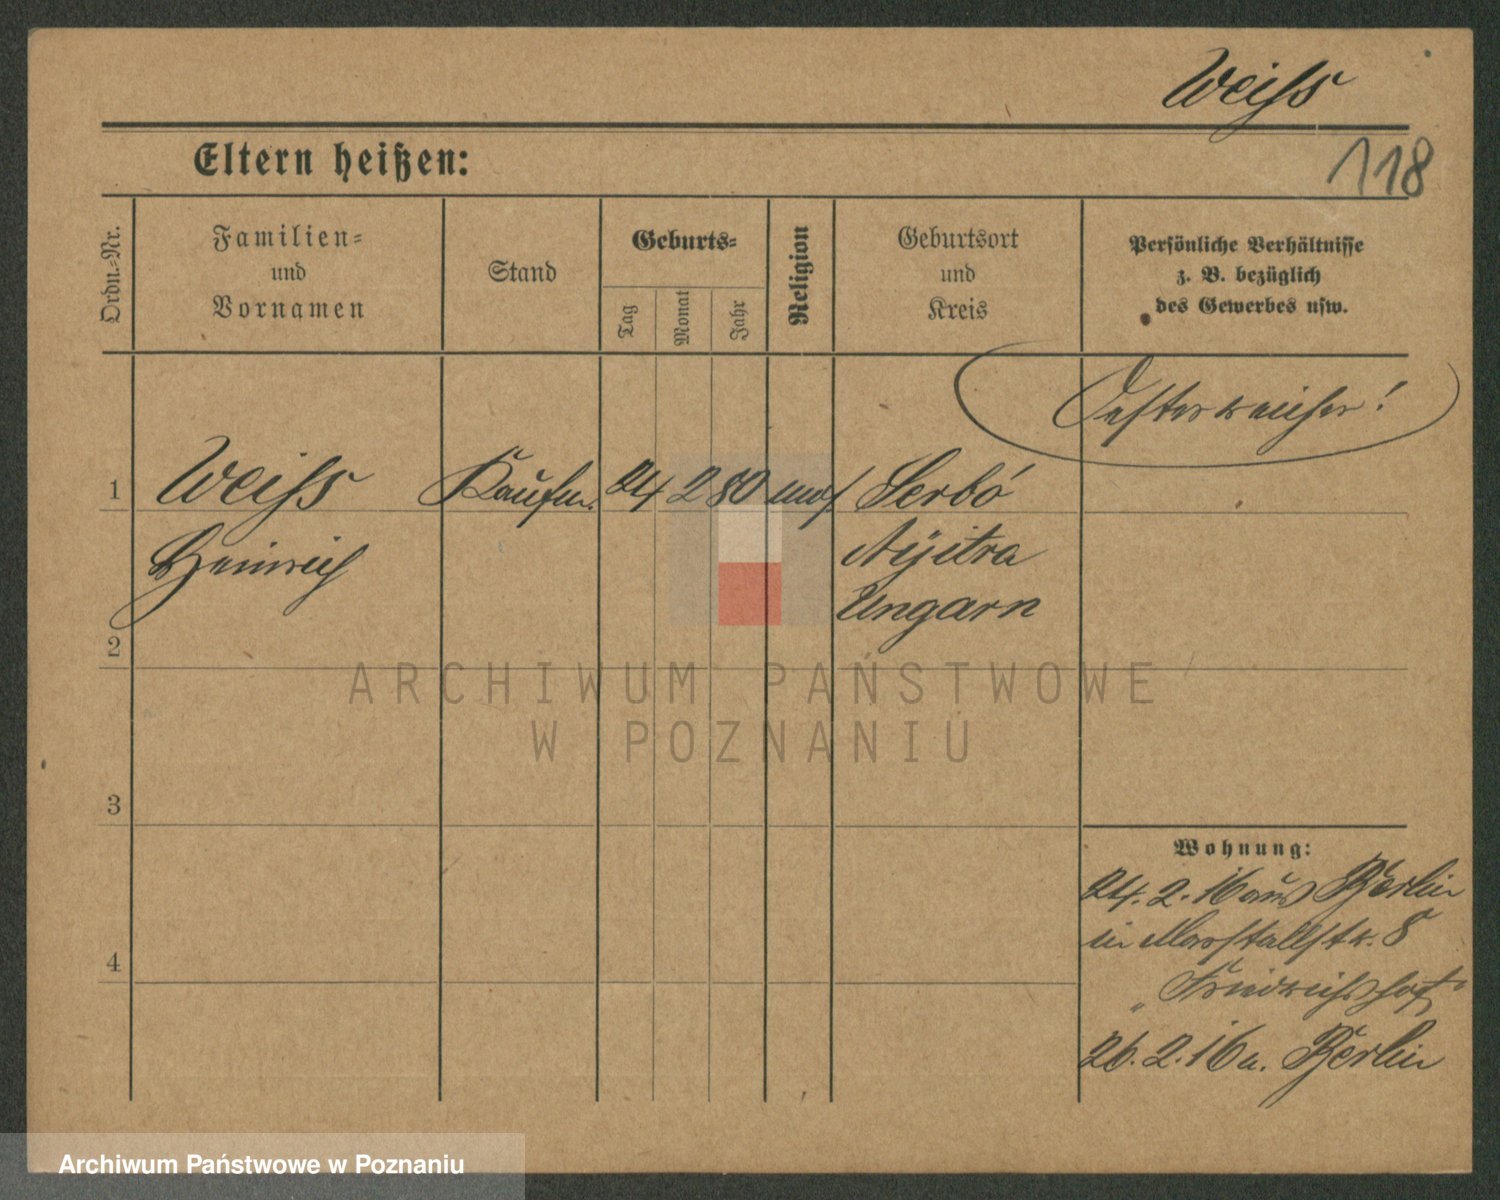 Weiss
118
Eltern heißen:
Ordn.-Nr.
Familien-
und
Vornamen
Stand
Geburts-
Tag
Monat
Jahr
Religion
Geburtsort
und
Kreis
Persönliche Verhältnisse
z. B. bezüglich
des Gewerbes usw.
Oesterreicher!
1 Weiss Kaufm. 24 2 80 Serbó
Heinrich Nyitra
Ungarn
2
ARCHIWUM PAŃSTWOWE
W POZNANIU
3
Wohnung:
24. 2. 16 aus Berlin
in Marstallstr. 8
4
„Friedrichshof"
26. 2. 16 n. Berlin
Archiwum Państwowe w Poznaniu